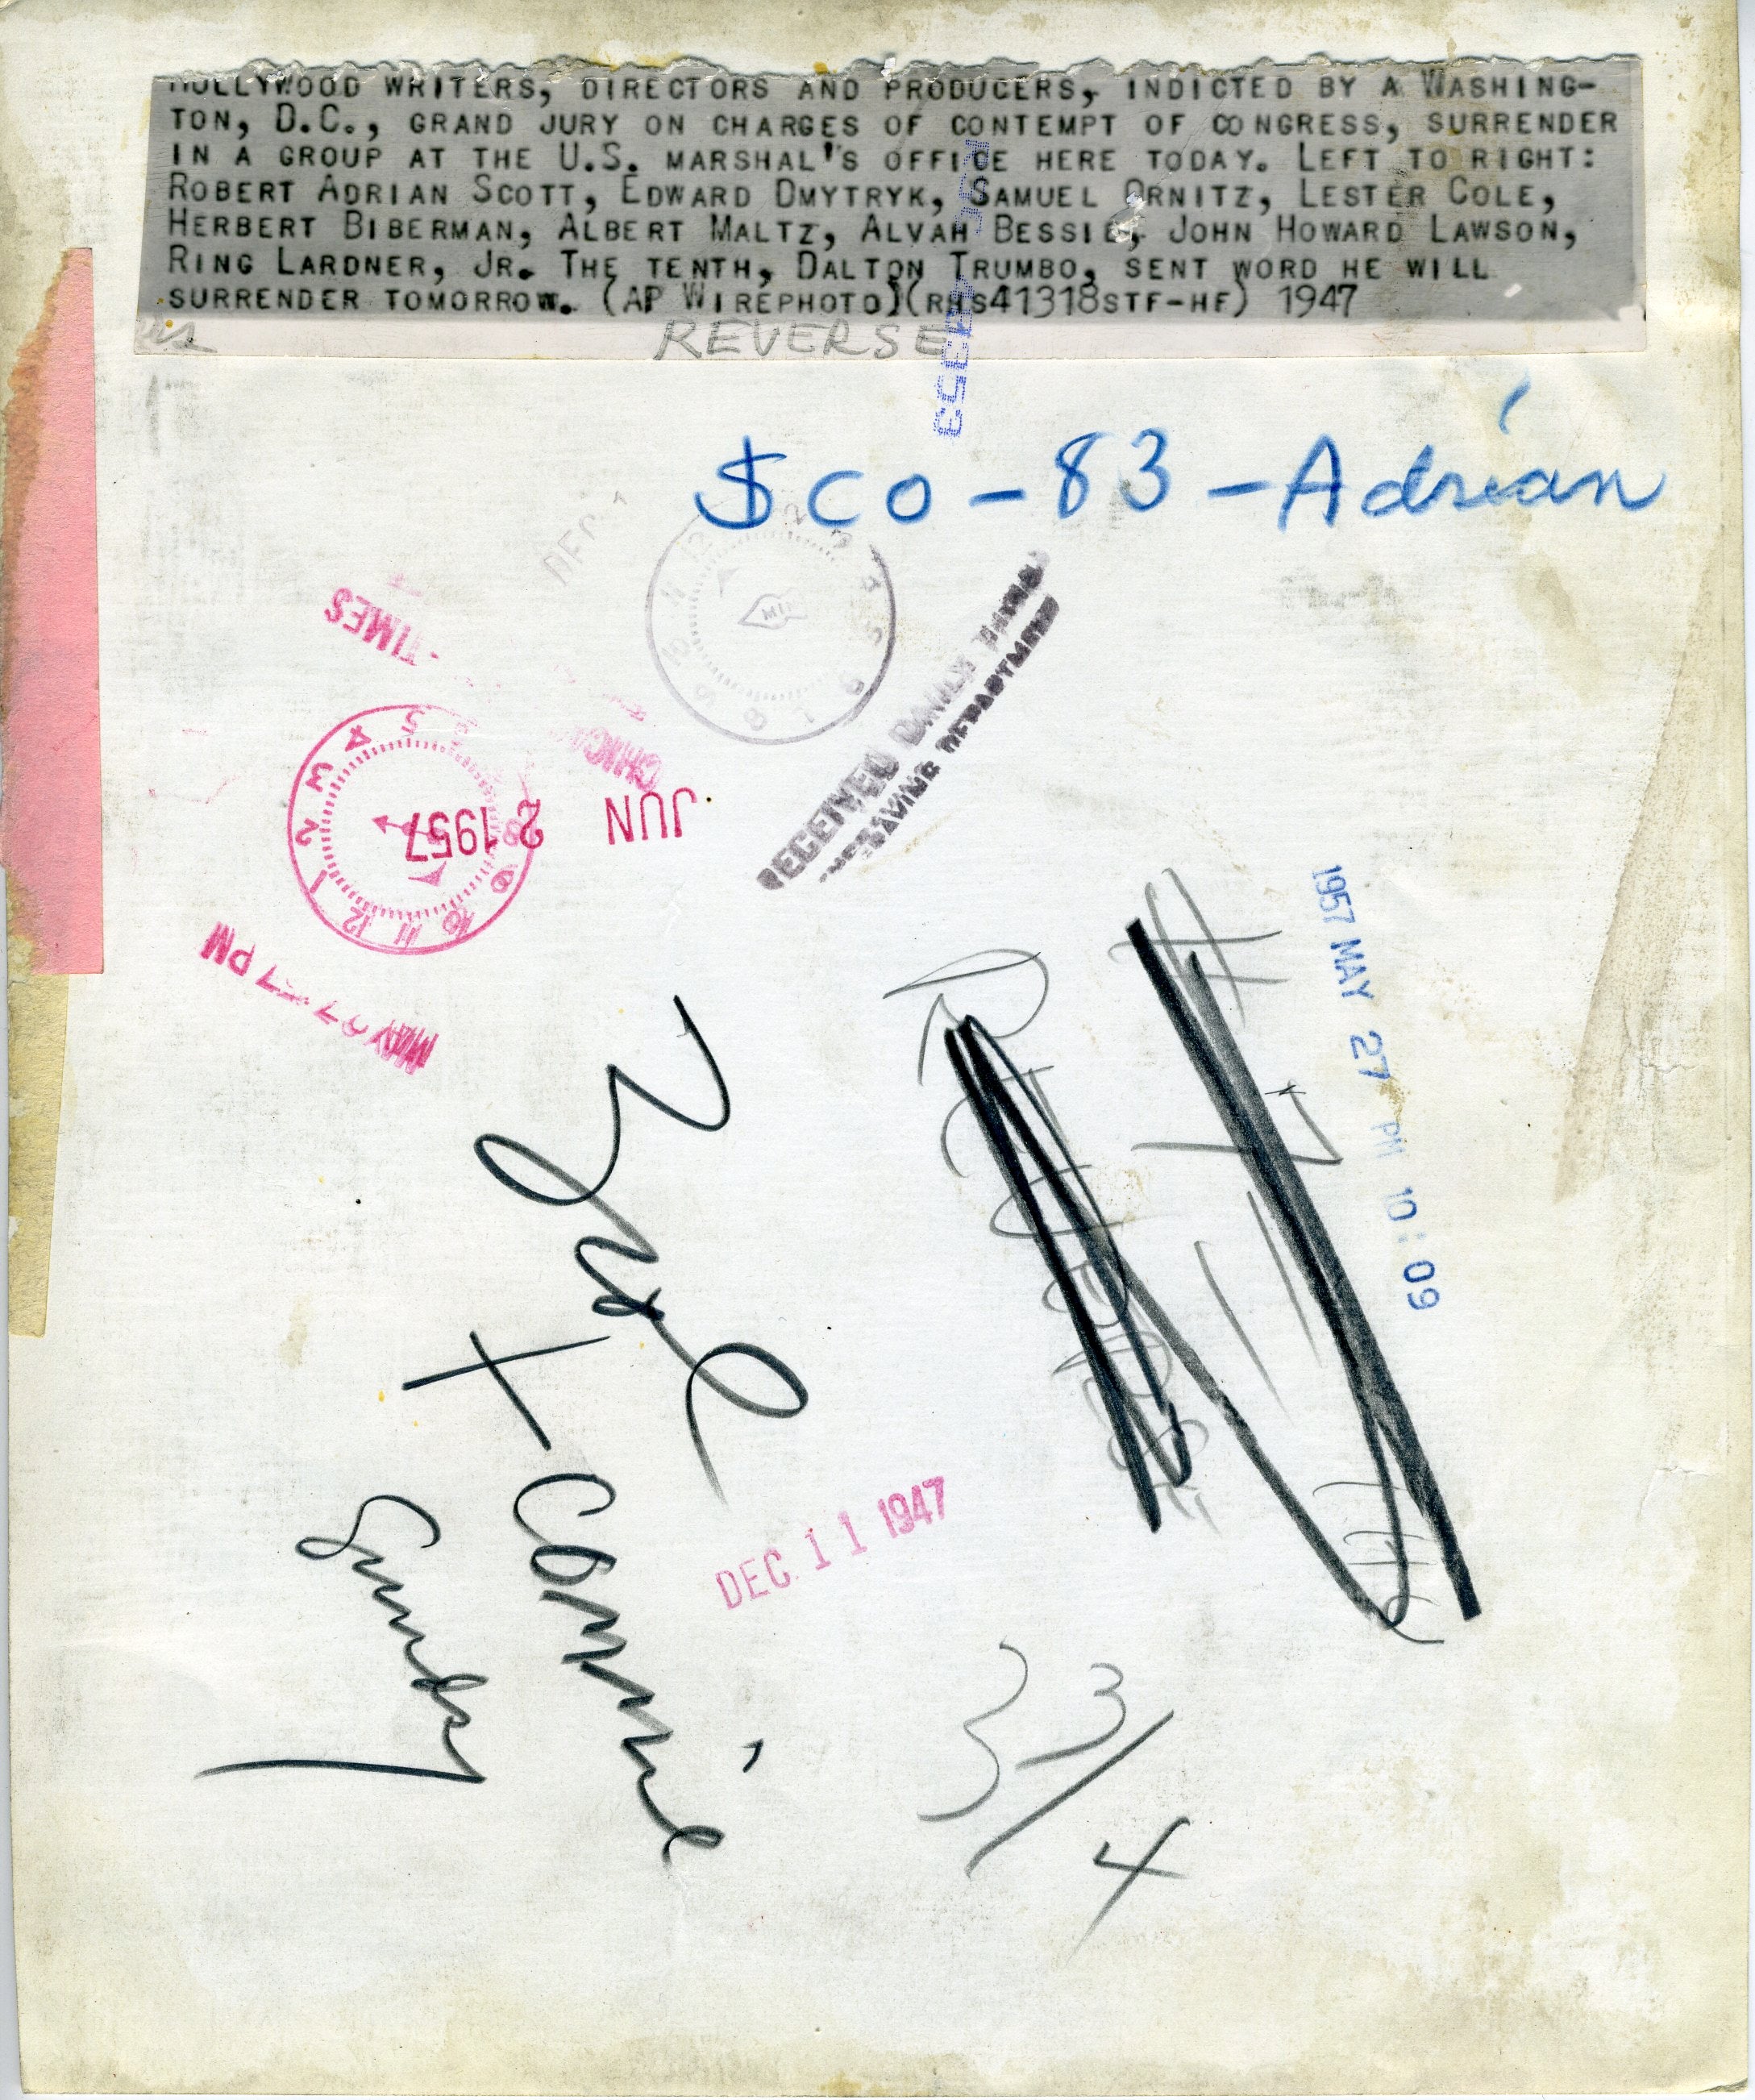 HOLLYWOOD WRITERS, DIRECTORS AND PRODUCERS, INDICTED BY A WASHING-
TON, D.C., GRAND JURY ON CHARGES OF CONTEMPT OF CONGRESS, SURRENDER
IN A GROUP AT THE U.S. MARSHAL'S OFFICE HERE TODAY. LEFT TO RIGHT:
ROBERT ADRIAN SCOTT, EDWARD DMYTRYK, SAMUEL ORNITZ, LESTER COLE,
HERBERT BIBERMAN, ALBERT MALTZ, ALVAH BESSIE, JOHN HOWARD LAWSON,
RING LARDNER, JR. THE TENTH, DALTON TRUMBO, SENT WORD HE WILL
SURRENDER TOMORROW. (AP WIREPHOTO)(RHS41318STF-HF) 1947
REVERSE
$CO-83-Adrian
DEC
TIMES
12 2 3 4 5 6 7 8 9 10 11
RECEIVED DAILY TIMES
ENGRAVING DEPARTMENT
JUN 2 1957
12 1 2 3 4 5 8 9 10 11
MAY 27 57 PM
1957 MAY 27 PM 10:09
2 col
+ comie
Sunday
DEC 11 1947
3 3/4